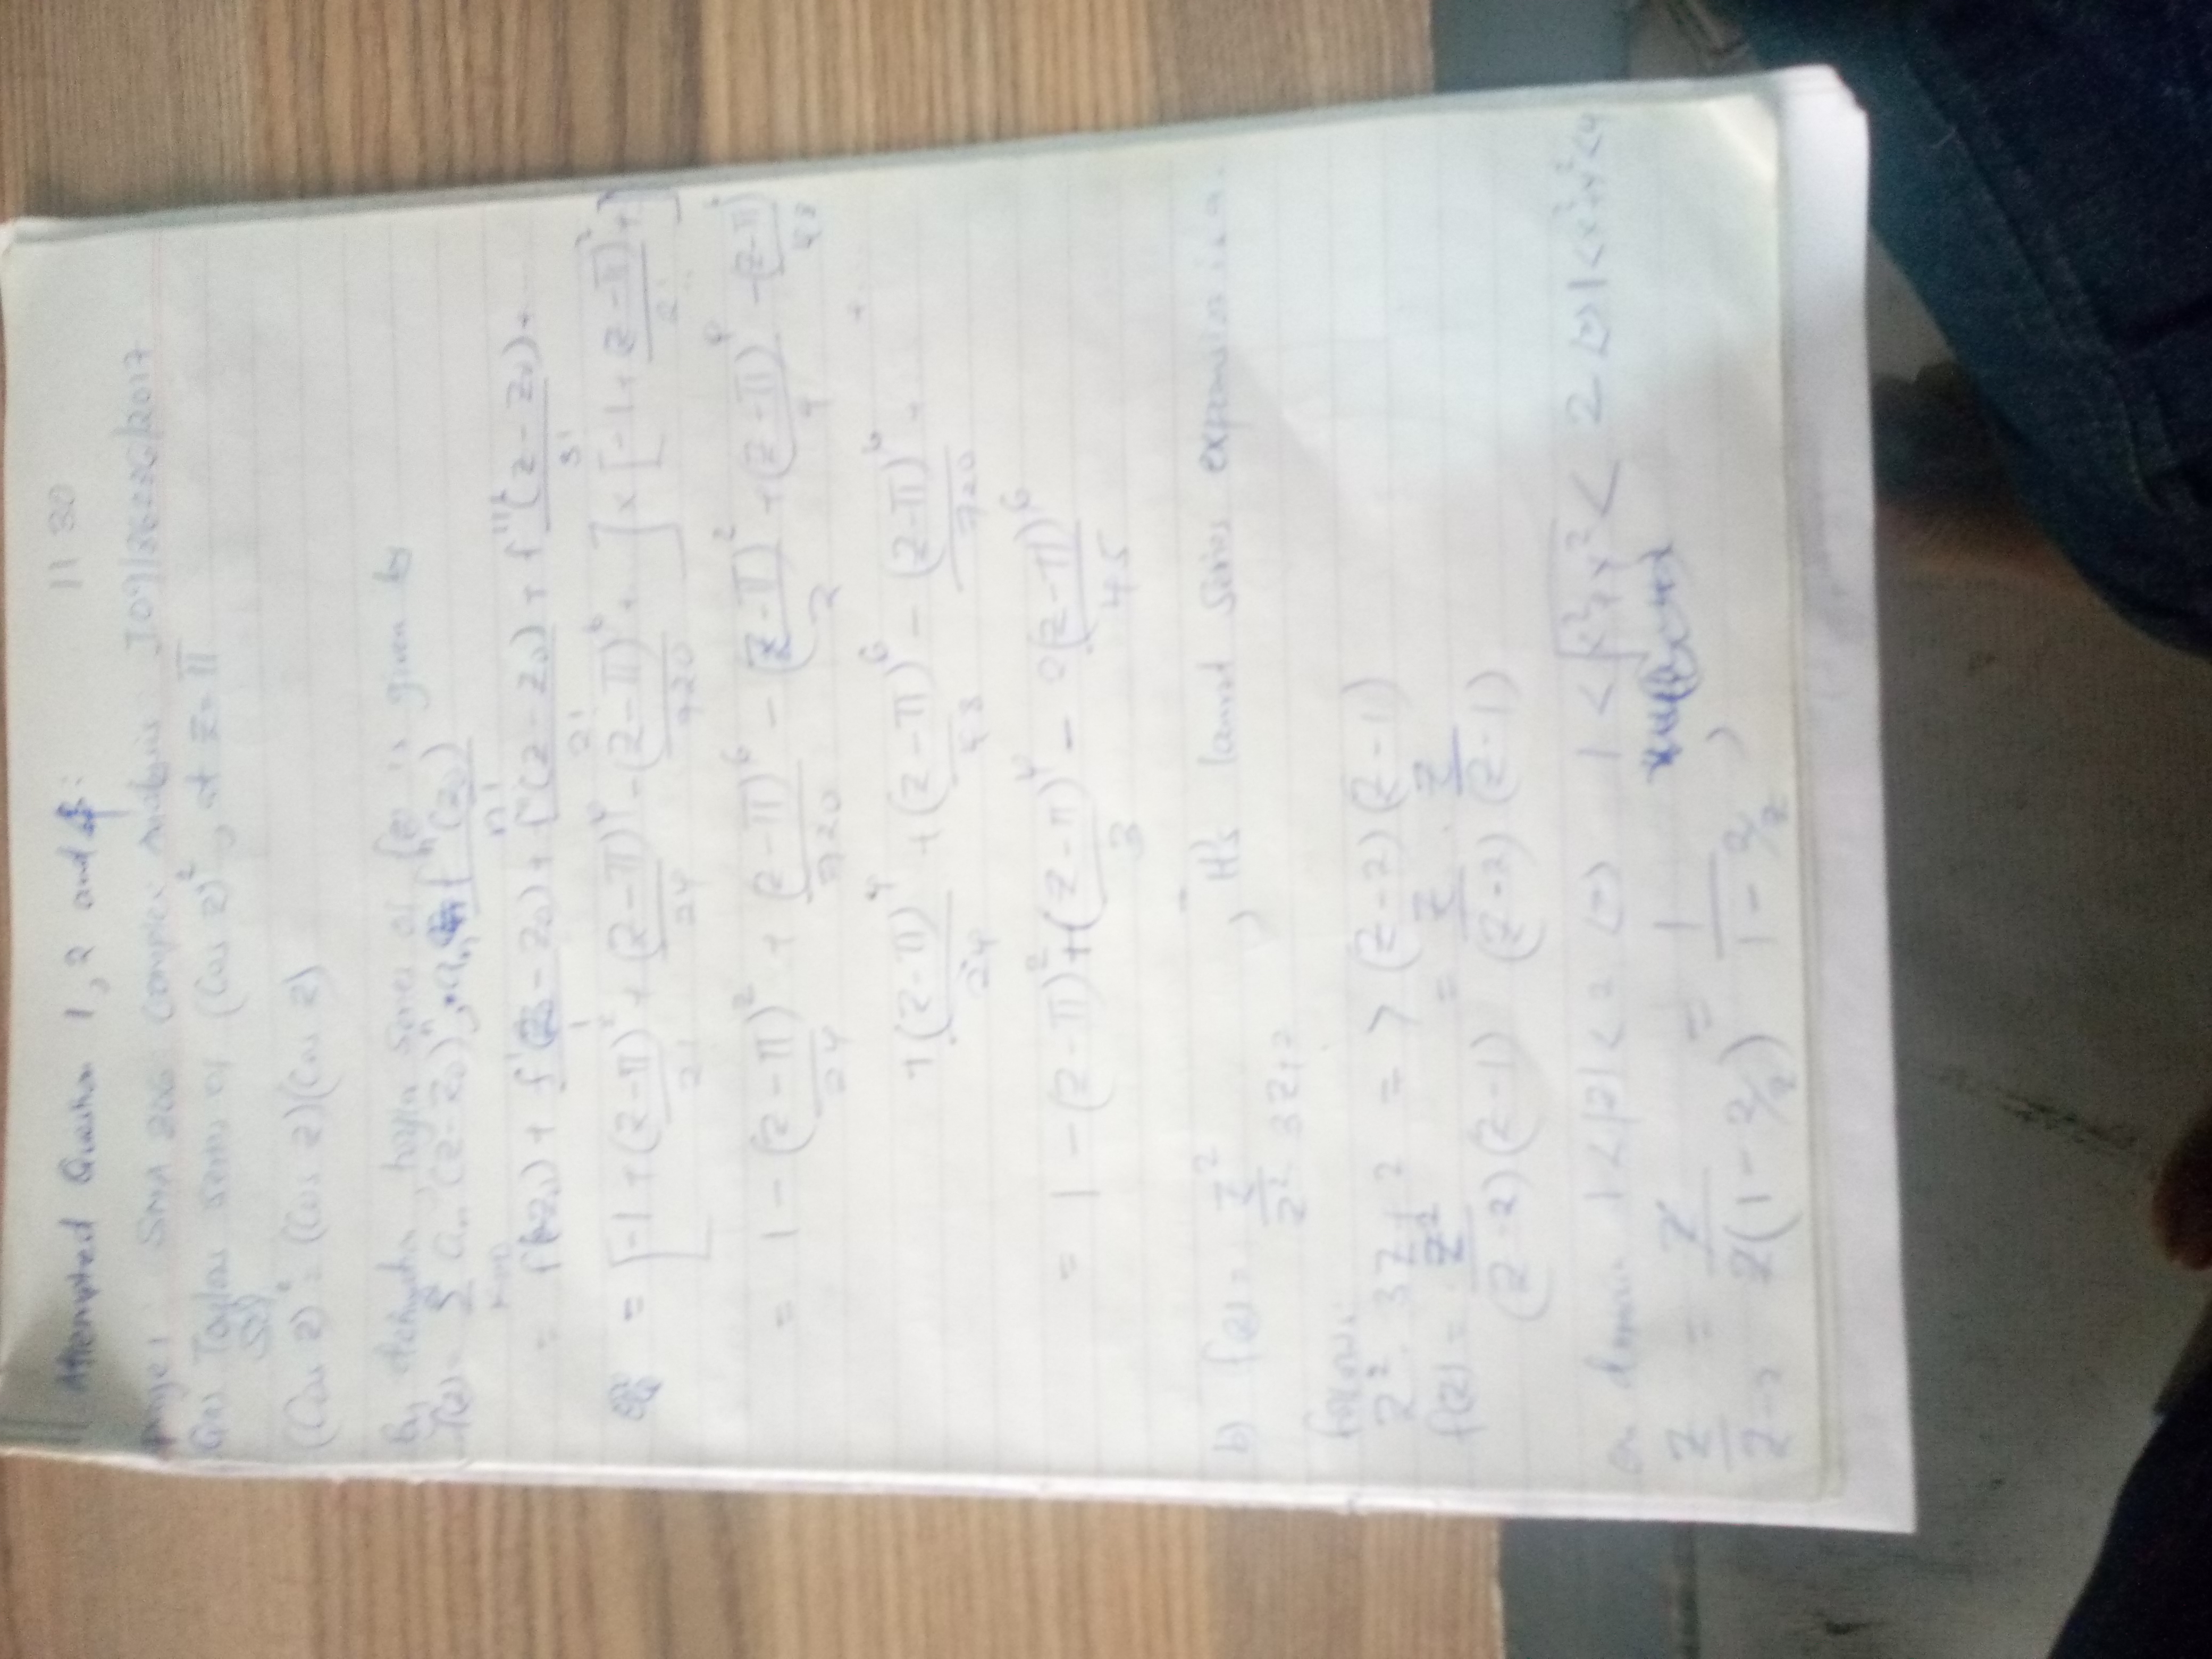 Attempted Question 1, 2 and 4: 11 30
page 1: SMA 206: Complex Analysis
Q1a) Taylors series of (Cos z)², at z = π
Soln
(Cos z)² = (Cos z)(Cos z)
By definition, Taylor Series of f(z) is given by
= f(z₀) + f'(z - z₀) + f''(z - z₀) + f'''(z - z₀) + ...
= [-1 + (z-π)²/2! + (z-π)⁴/24 - (z-π)⁶/720 + ] × [-1 + z-π)²/2! + ]
= 1 - (z-π)²/24 + (z-π)⁶/720 - (z-π)²/2 + (z-π)⁴/4 - (z-π)⁶/48
+(z-π)⁴/24 + (z-π)⁶/48 - (z-π)⁶/720 + ...
= 1 - (z-π)² + (z-π)⁴/3 - 2(z-π)⁶/45
b) f(z) = z²/z²-3z+2, it's laurent series expansion in a.
z²-3z+2 => (z-2)(z-1)
f(z) = z²/(z-2)(z-1) = z/(z-2) . z/(z-1)
on domain 1<|z|<2 <=> 1 < √x²+y² < 2 <=> 1<x²+y²<4
z/z-2 = z/z(1-2/z) = 1/1-2/z ,